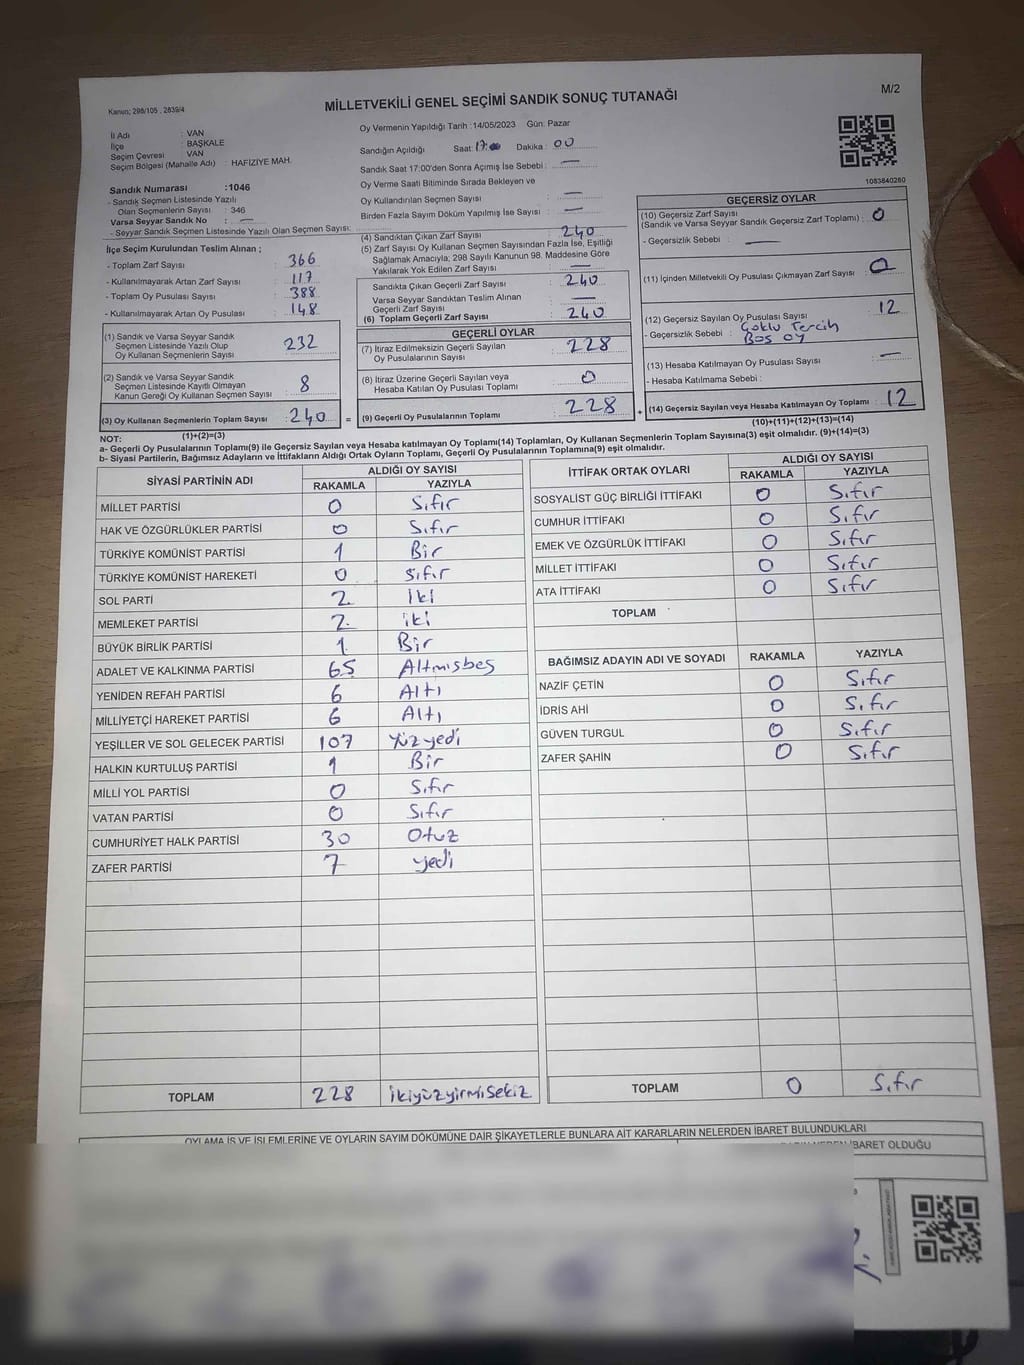 Kanun; 298/105 , 2839/4
MİLLETVEKİLİ GENEL SEÇİMİ SANDIK SONUÇ TUTANAĞI
M/2
İl Adı : VAN
İlçe : BAŞKALE
Seçim Çevresi : VAN
Seçim Bölgesi (Mahalle Adı) : HAFIZIYE MAH.
Sandık Numarası :1046
- Sandık Seçmen Listesinde Yazılı
Olan Seçmenlerin Sayısı : 346
Varsa Seyyar Sandık No : —
- Seyyar Sandık Seçmen Listesinde Yazılı Olan Seçmen Sayısı:
İlçe Seçim Kurulundan Teslim Alınan ;
- Toplam Zarf Sayısı : 366
- Kullanılmayarak Artan Zarf Sayısı : 117
- Toplam Oy Pusulası Sayısı : 388
- Kullanılmayarak Artan Oy Pusulası : 148
(1) Sandık ve Varsa Seyyar Sandık
Seçmen Listesinde Yazılı Olup
Oy Kullanan Seçmenlerin Sayısı : 232
(2) Sandık ve Varsa Seyyar Sandık
Seçmen Listesinde Kayıtlı Olmayan
Kanun Gereği Oy Kullanan Seçmen Sayısı : 8
(3) Oy Kullanan Seçmenlerin Toplam Sayısı : 240 =
(1)+(2)=(3)
Oy Vermenin Yapıldığı Tarih :14/05/2023 Gün: Pazar
Sandığın Açıldığı Saat: 17:00 Dakika : 00
Sandık Saat 17:00'den Sonra Açımış İse Sebebi : —
Oy Verme Saati Bitiminde Sırada Bekleyen ve
Oy Kullandırılan Seçmen Sayısı : —
Birden Fazla Sayım Döküm Yapılmış İse Sayısı : —
(4) Sandıktan Çıkan Zarf Sayısı : 240
(5) Zarf Sayısı Oy Kullanan Seçmen Sayısından Fazla İse, Eşitliği
Sağlamak Amacıyla, 298 Sayılı Kanunun 98. Maddesine Göre
Yakılarak Yok Edilen Zarf Sayısı : —
Sandıkta Çıkan Geçerli Zarf Sayısı : 240
Varsa Seyyar Sandıktan Teslim Alınan
Geçerli Zarf Sayısı : —
(6) Toplam Geçerli Zarf Sayısı : 240
GEÇERLİ OYLAR
(7) İtiraz Edilmeksizin Geçerli Sayılan
Oy Pusulalarının Sayısı : 228
(8) İtiraz Üzerine Geçerli Sayılan veya
Hesaba Katılan Oy Pusulası Toplamı : 0
(9) Geçerli Oy Pusulalarının Toplamı : 228 +
1083840280
GEÇERSİZ OYLAR
(10) Geçersiz Zarf Sayısı
(Sandık ve Varsa Seyyar Sandık Geçersiz Zarf Toplamı) : 0
- Geçersizlik Sebebi : —
(11) İçinden Milletvekili Oy Pusulası Çıkmayan Zarf Sayısı : 0
(12) Geçersiz Sayılan Oy Pusulası Sayısı : 12
- Geçersizlik Sebebi : Çoklu Tercih
Boş oy
(13) Hesaba Katılmayan Oy Pusulası Sayısı : —
- Hesaba Katılmama Sebebi :
(14) Geçersiz Sayılan veya Hesaba Katılmayan Oy Toplamı : 12
(10)+(11)+(12)+(13)=(14)
NOT:
a- Geçerli Oy Pusulalarının Toplamı(9) ile Geçersiz Sayılan veya Hesaba katılmayan Oy Toplamı(14) Toplamları, Oy Kullanan Seçmenlerin Toplam Sayısına(3) eşit olmalıdır. (9)+(14)=(3)
b- Siyasi Partilerin, Bağımsız Adayların ve İttifakların Aldığı Ortak Oyların Toplamı, Geçerli Oy Pusulalarının Toplamına(9) eşit olmalıdır.
SİYASİ PARTİNİN ADI ALDIĞI OY SAYISI
RAKAMLA YAZIYLA
MİLLET PARTİSİ 0 Sıfır
HAK VE ÖZGÜRLÜKLER PARTİSİ 0 Sıfır
TÜRKİYE KOMÜNİST PARTİSİ 1 Bir
TÜRKİYE KOMÜNİST HAREKETİ 0 Sıfır
SOL PARTİ 2 iki
MEMLEKET PARTİSİ 2 iki
BÜYÜK BİRLİK PARTİSİ 1 Bir
ADALET VE KALKINMA PARTİSİ 65 Altmışbeş
YENİDEN REFAH PARTİSİ 6 Altı
MİLLİYETÇİ HAREKET PARTİSİ 6 Altı
YEŞİLLER VE SOL GELECEK PARTİSİ 107 Yüzyedi
HALKIN KURTULUŞ PARTİSİ 1 Bir
MİLLİ YOL PARTİSİ 0 Sıfır
VATAN PARTİSİ 0 Sıfır
CUMHURİYET HALK PARTİSİ 30 Otuz
ZAFER PARTİSİ 7 yedi
TOPLAM 228 ikiyüzyirmisekiz
İTTİFAK ORTAK OYLARI ALDIĞI OY SAYISI
RAKAMLA YAZIYLA
SOSYALİST GÜÇ BİRLİĞİ İTTİFAKI 0 Sıfır
CUMHUR İTTİFAKI 0 Sıfır
EMEK VE ÖZGÜRLÜK İTTİFAKI 0 Sıfır
MİLLET İTTİFAKI 0 Sıfır
ATA İTTİFAKI 0 Sıfır
TOPLAM
BAĞIMSIZ ADAYIN ADI VE SOYADI RAKAMLA YAZIYLA
NAZİF ÇETİN 0 Sıfır
İDRİS AHİ 0 Sıfır
GÜVEN TURGUL 0 Sıfır
ZAFER ŞAHİN 0 Sıfır
TOPLAM 0 Sıfır
OYLAMA İŞ VE İŞLEMLERİNE VE OYLARIN SAYIM DÖKÜMÜNE DAİR ŞİKAYETLERLE BUNLARA AİT KARARLARIN NELERDEN İBARET BULUNDUKLARI
İBARET OLDUĞU